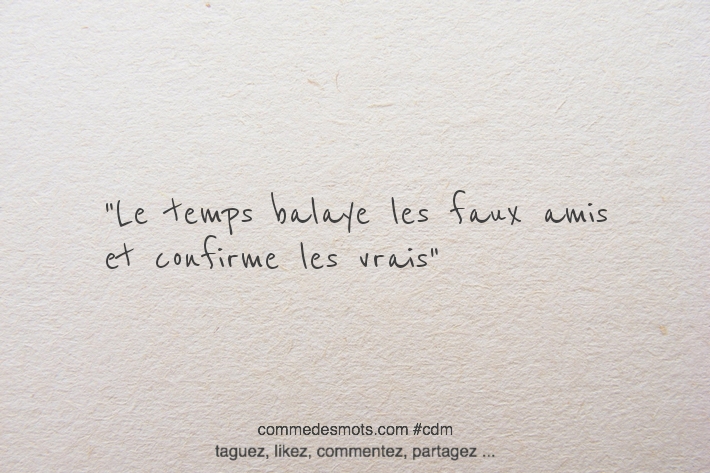 "Le temps balaye les faux amis
et confirme les vrais"
commedesmots.com #cdm
taguez, likez, commentez, partagez ...